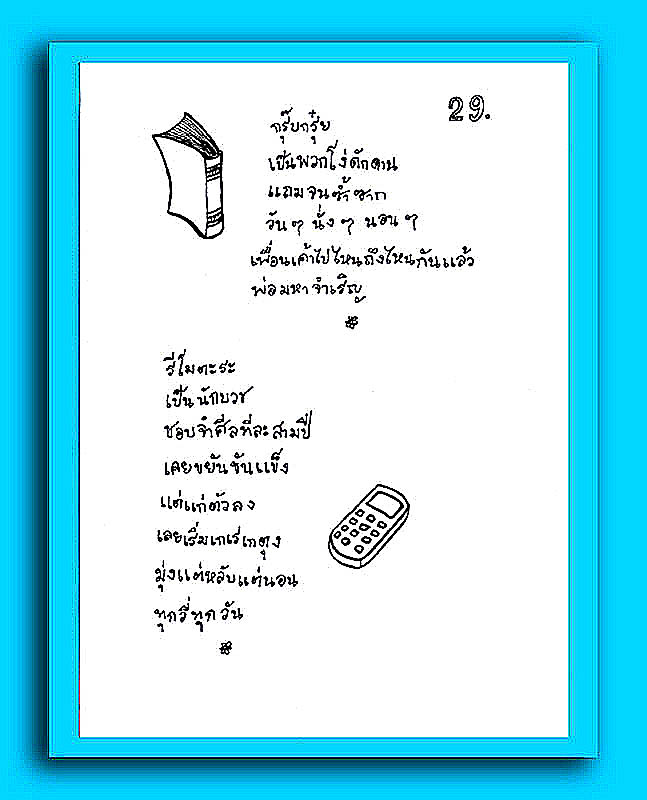 29.
กรุ๊บกรุ๋ย
เป็นพวกโง่ดักดาน
แถมจนซ้ำซาก
วัน ๆ นั่ง ๆ นอน ๆ
เพื่อนเค้าไปไหนถึงไหนกันแล้ว
พ่อมหาจำเริญ
รีโมตะระ
เป็นนักบวช
ชอบจำศีลทีละสามปี
เคยขยันขันแข็ง
แต่แก่ตัวลง
เลยเริ่มเกเรเกตุง
มุ่งแต่หลับแต่นอน
ทุกวี่ทุกวัน